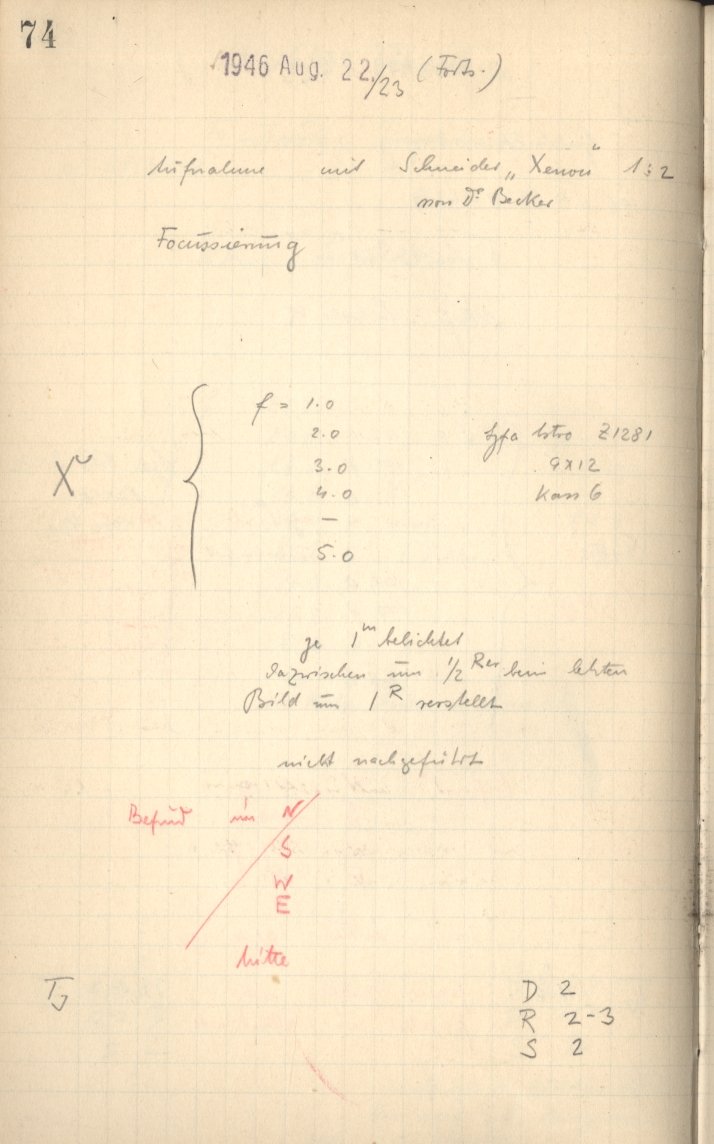 74
1946 Aug. 22./23 (Forts.)
Aufnahme mit Schneider „Xenon" 1:2
von Dr Becker
Focussierung
f = 1.0
2.0
Agfa Astro Z1281
3.0
9x12
X
4.0
Kass 6
—
5.0
je 1m belichtet
dazwischen um 1/2 Rev beim letzten
Bild um 1R verstellt
nicht nachgeführt
Befund im N
S
W
E
Mitte
D 2
R 2-3
S 2